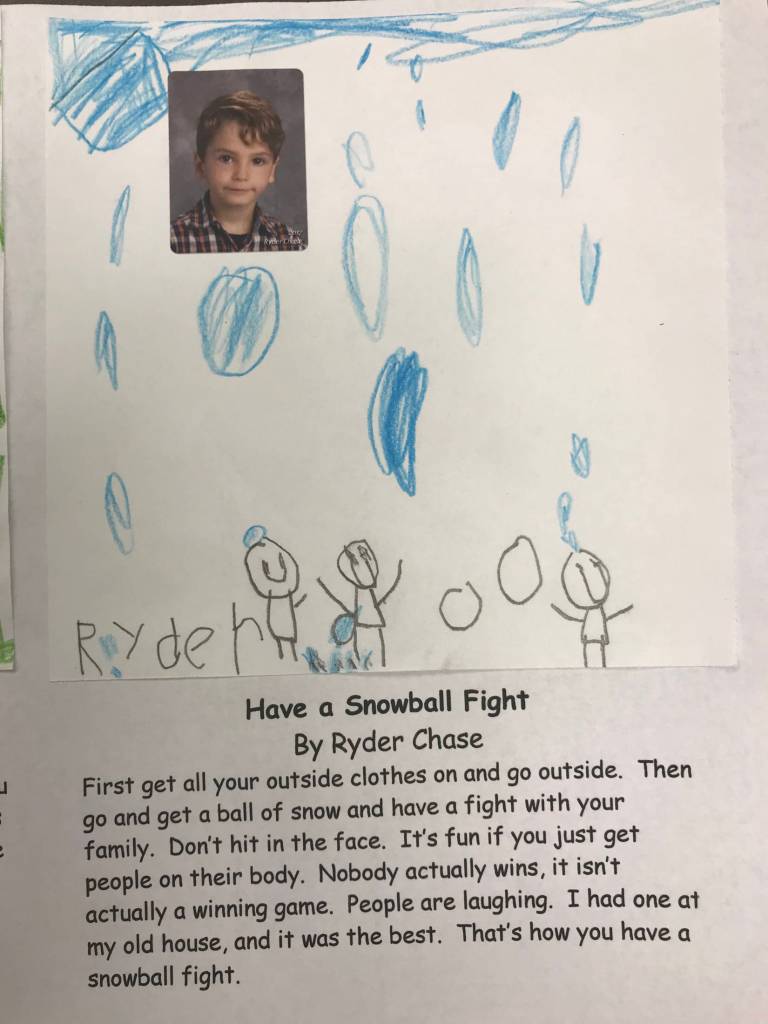 2017
Ryder Chase
Ryder
Have a Snowball Fight
By Ryder Chase
First get all your outside clothes on and go outside.  Then
go and get a ball of snow and have a fight with your
family.  Don't hit in the face.  It's fun if you just get
people on their body.  Nobody actually wins, it isn't
actually a winning game.  People are laughing.  I had one at
my old house, and it was the best.  That's how you have a
snowball fight.